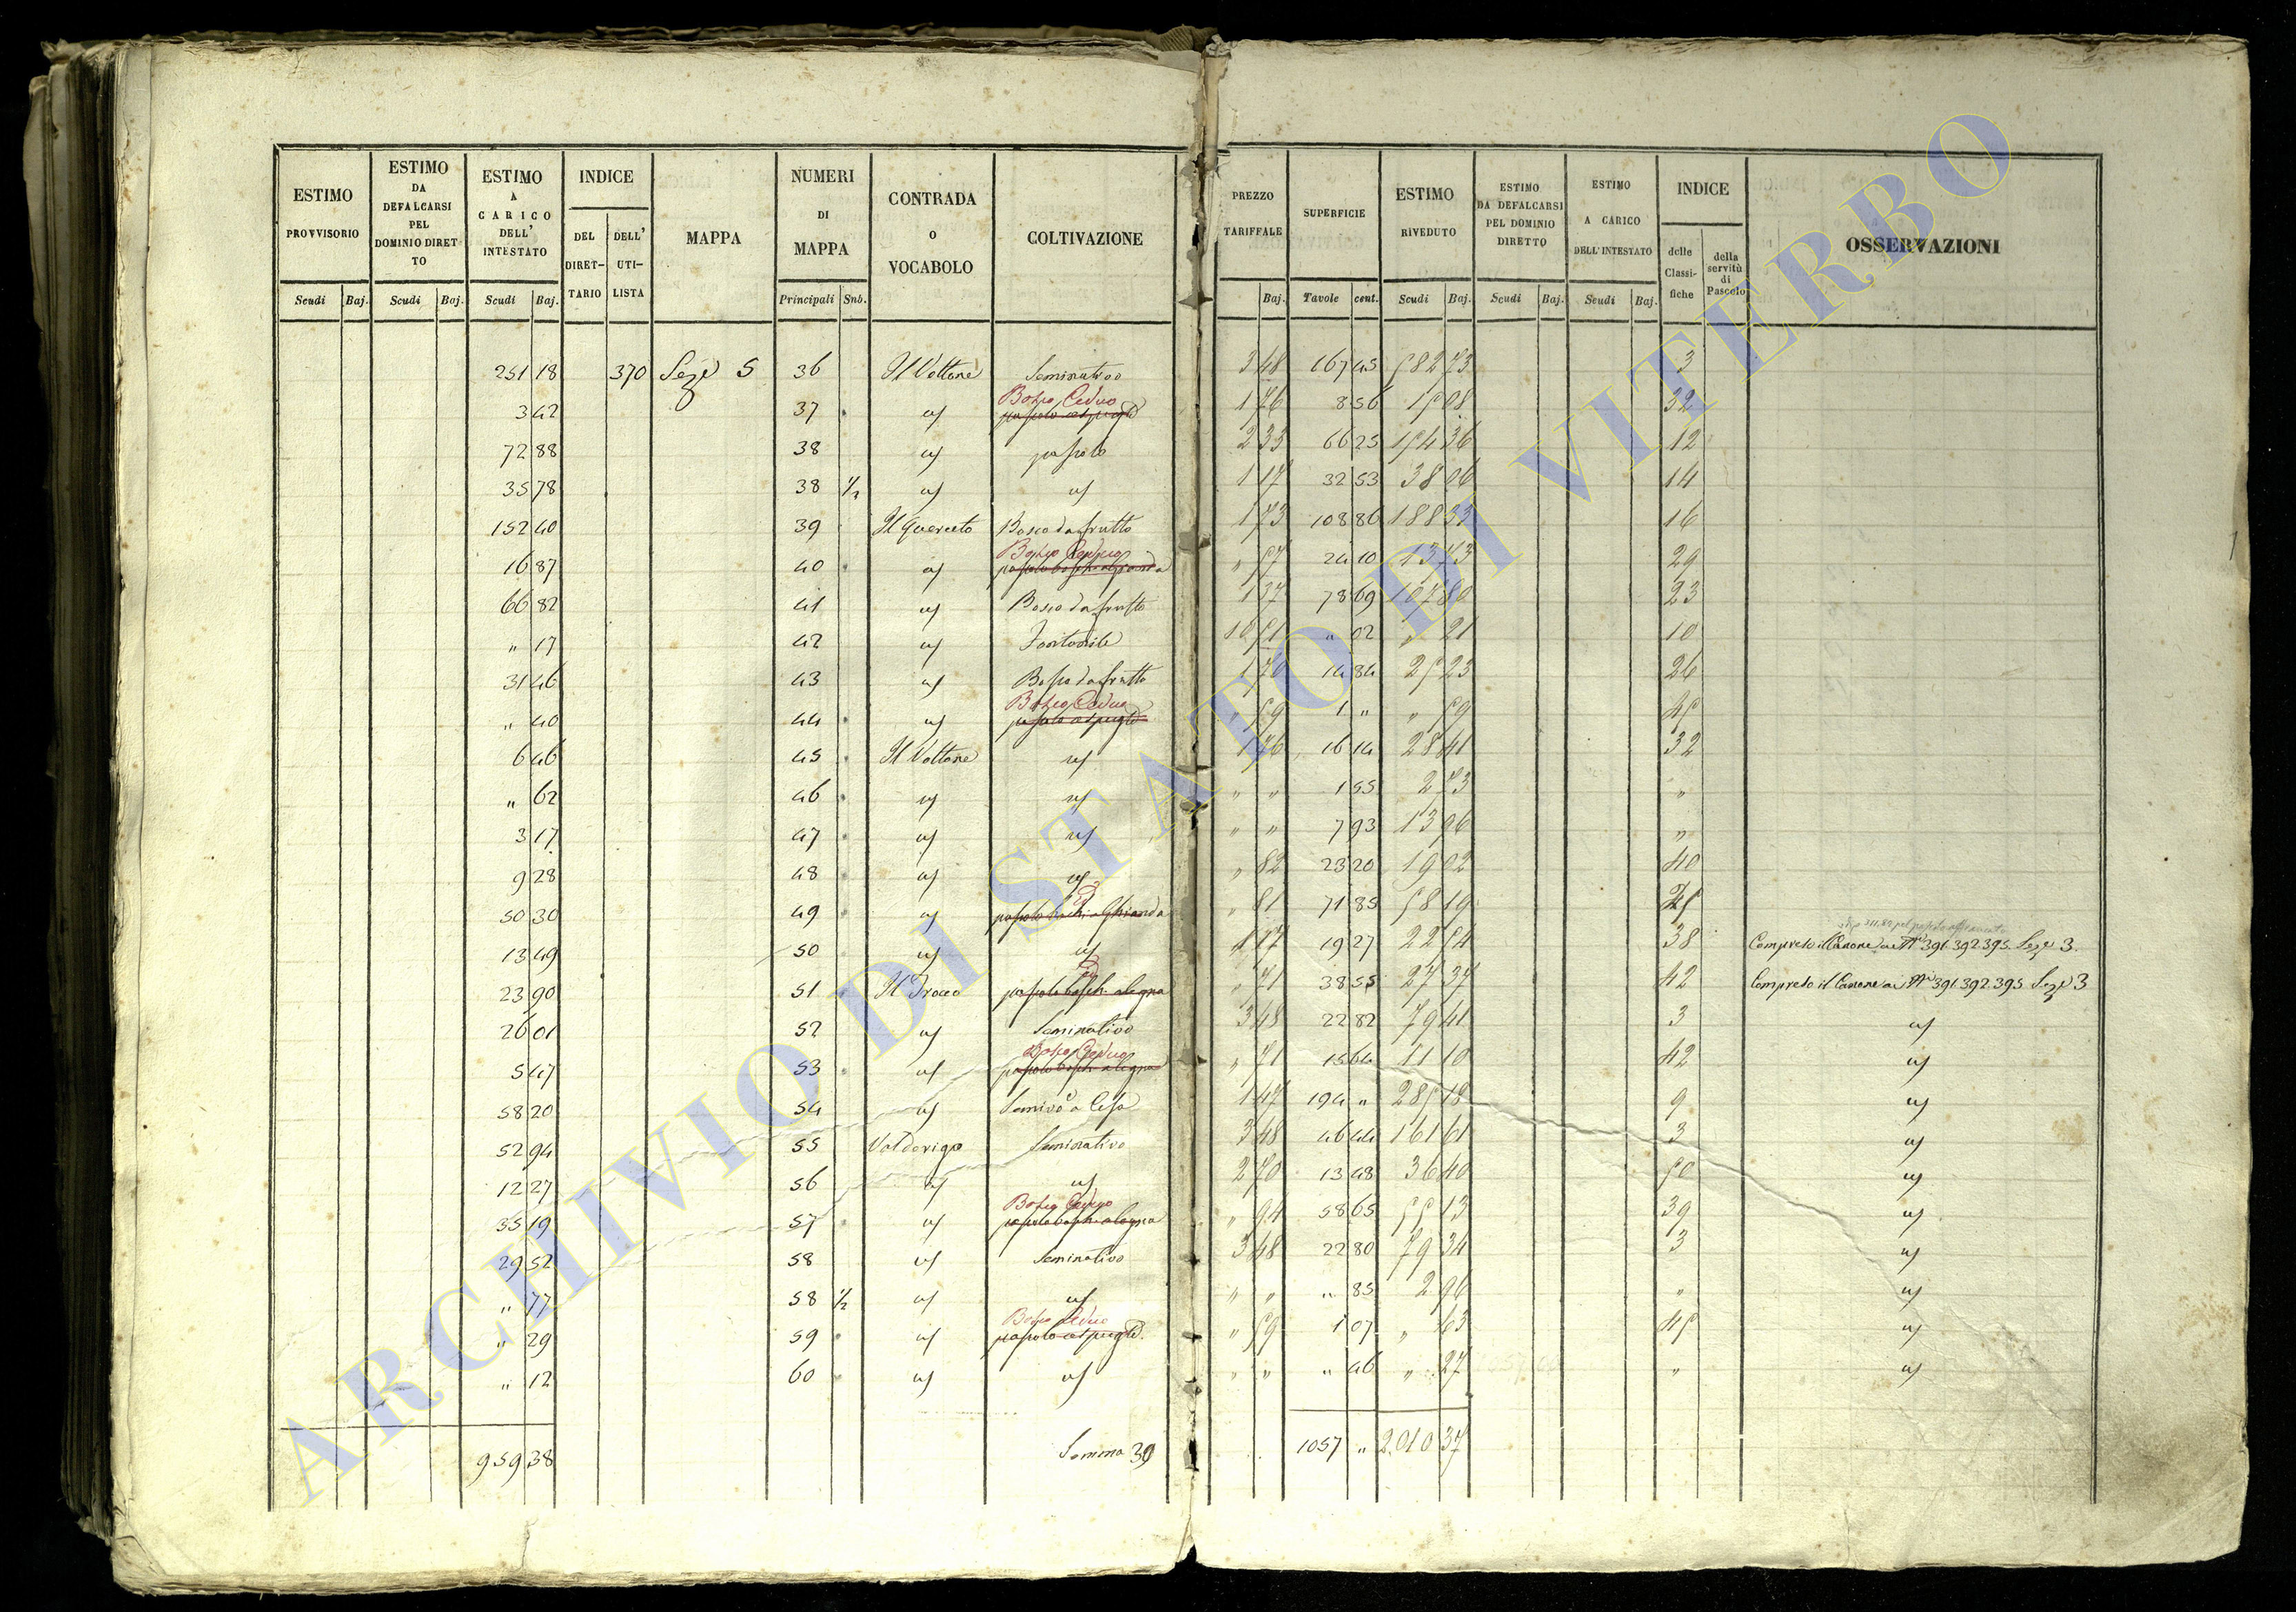 ESTIMO PROVVISORIO
ESTIMO DA DEFALCARSI PEL DOMINIO DIRETTO
ESTIMO A CARICO DELL' INTESTATO
INDICE
DEL DIRETTARIO
DELL' UTILISTA
MAPPA
NUMERI DI MAPPA
CONTRADA O VOCABOLO
COLTIVAZIONE
PREZZO TARIFFALE
SUPERFICIE
ESTIMO RIVEDUTO
ESTIMO DA DEFALCARSI PEL DOMINIO DIRETTO
ESTIMO A CARICO DELL'INTESTATO
INDICE
delle Classifiche
della servitù di Pascolo
OSSERVAZIONI
Scudi Baj. Scudi Baj. Scudi Baj. Principali Sub. Baj. Tavole cent. Scudi Baj. Scudi Baj. Scudi Baj.
251 18 370 Sez.e 5 36 Il Vottone Seminativo 3 48 167 45 582 73 3
Bosco Ceduo
3 42 37 " 1 76 8 56 15 08 32
72 88 38 " pascolo 2 33 66 25 154 36 12
35 78 38 1/2 " " 1 17 32 53 38 06 14
152 40 39 Il Querceto Bosco da frutto 1 73 108 86 188 33 16
Bosco Ceduo
16 87 40 " " 57 24 10 13 73 29
66 82 41 " Bosco da frutto 1 37 78 69 107 80 23
" 17 42 " Fontanile 10 51 " 02 " 21 10
31 46 43 " Bosco da frutto 1 70 14 84 25 23 26
Bosco Ceduo
" 40 44 " " 59 1 " " 59 45
6 46 45 Il Vottone " 1 76 16 14 28 41 32
" 62 46 " " " " 1 55 2 73 "
3 17 47 " " " " 7 93 13 96 "
9 28 48 " " " 82 23 20 19 02 40
50 30 49 " pascolo boschi a Ghianda " 81 71 85 58 19
13 49 50 " " 1 17 19 27 22 54 38 Compreso il Canone ai Nri 391.392.395. Sez.e 3.
23 90 51 pascolo bosch. a legna " 71 38 55 27 37 42 Compreso il Canone ai Nri 391.392.395 Sez.e 3
26 01 52 " Seminativo 3 48 22 82 79 41 3 "
Bosco Ceduo
5 47 53 " pascolo bosch. a legna " 71 15 64 11 10 42 "
58 20 54 " Semivo a Cesa 1 47 194 " 285 18 9 "
52 94 55 Valderigo Seminativo 3 48 46 44 161 61 3 "
12 27 56 " " 2 70 13 48 36 40 50 "
Bosco Ceduo
35 19 57 " pascolo bosch. a legna " 94 58 65 55 13 39 "
29 52 58 " Seminativo 3 48 22 80 79 34 3 "
" 77 58 1/2 " " " " " 85 2 96 " "
Bosco Ceduo
" 29 59 " " 59 1 07 " 63 45 "
" 12 60 " " " " " 46 " 27 " "
959 38 Somma 39 1057 " 2,010 37
ARCHIVIO DI STATO DI VITERBO